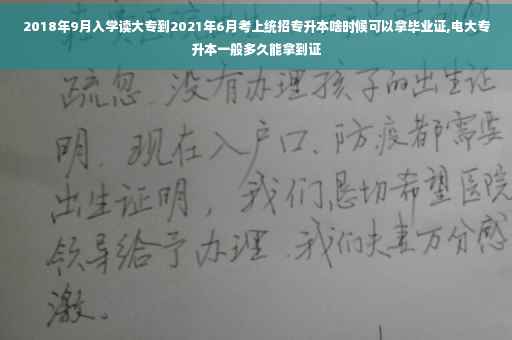 2018年9月入学读大专到2021年6月考上统招专升本啥时候可以拿毕业证,电大专
升本一般多久能拿到证
疏忽、没有办理孩子的出生证
明、现在入户口、防疫都需要
出生证明，我们恳切希望医院
领导给予办理、我们夫妻万分感
激。